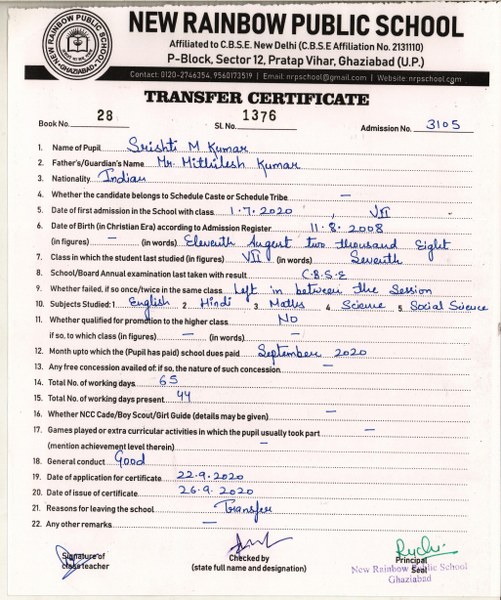 NEW RAINBOW PUBLIC SCHOOL
NEW RAINBOW PUBLIC SCHOOL
GHAZIABAD
Affiliated to C.B.S.E. New Delhi (C.B.S.E Affiliation No. 2131110)
P-Block, Sector 12, Pratap Vihar, Ghaziabad (U.P.)
Contact: 0120-2746354, 9560173519 | Email: nrpschool@gmail.com | Website: nrpschool.com
TRANSFER CERTIFICATE
Book No. 28 Sl. No. 1376 Admission No. 3105
1. Name of Pupil Srishti M Kumar
2. Father's/Guardian's Name Mr. Mithilesh Kumar
3. Nationality Indian
4. Whether the candidate belongs to Schedule Caste or Schedule Tribe —
5. Date of first admission in the School with class 1.7.2020, VII
6. Date of Birth (in Christian Era) according to Admission Register 11.8.2008
(in figures) — (in words) Eleventh August two thousand Eight
7. Class in which the student last studied (in figures) VII (in words) Seventh
8. School/Board Annual examination last taken with result C.B.S.E
9. Whether failed, if so once/twice in the same class Left in between the Session
10. Subjects Studied: 1. English 2. Hindi 3. Maths 4. Science 5. Social Science
11. Whether qualified for promotion to the higher class NO
if so, to which class (in figures) — (in words) —
12. Month upto which the (Pupil has paid) school dues paid September 2020
13. Any free concession availed of: if so, the nature of such concession —
14. Total No. of working days 65
15. Total No. of working days present 44
16. Whether NCC Cade/Boy Scout/Girl Guide (details may be given) —
17. Games played or extra curricular activities in which the pupil usually took part —
(mention achievement level therein) —
18. General conduct Good
19. Date of application for certificate 22.9.2020
20. Date of issue of certificate 26.9.2020
21. Reasons for leaving the school Transfer
22. Any other remarks —
Signature of Checked by Principal
class teacher (state full name and designation) Seal
New Rainbow Public School
Ghaziabad